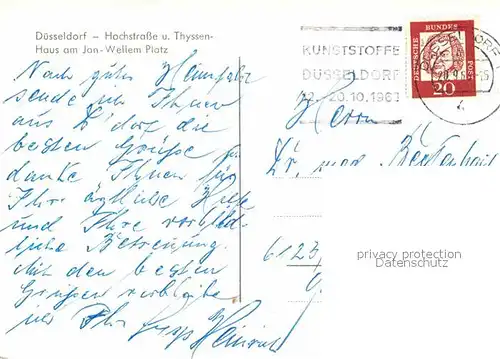 Düsseldorf – Hochstraße u. Thyssen-
Haus am Jan-Wellem Platz
Nach guter Heimfahrt
sende ich Ihnen
aus D'dorf die
besten Grüße
danke Ihnen für
Ihre ärztliche Hilfe
und Ihre vorbild-
liche Betreuung.
Mit den besten
Grüßen verbleibe
ich Ihr
Heinrich
KUNSTSTOFFE
DÜSSELDORF
12.-20.10.1963
DEUTSCHE BUNDESPOST
20
Herrn
Dr. med.
6123
privacy protection
Datenschutz